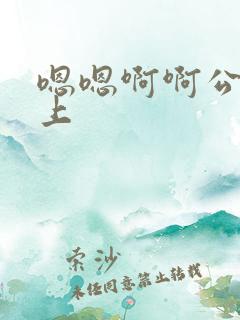 嗯嗯啊啊公
上
索沙
未经同意禁止转载